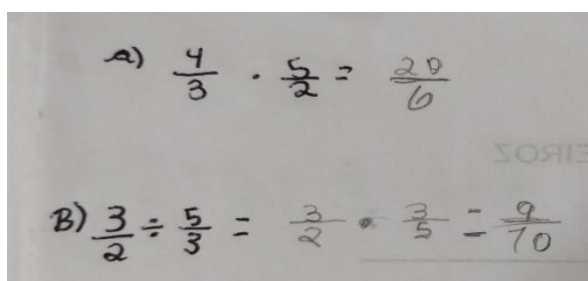 a) 4/3 · 5/2 = 20/6
EIROZ
B) 3/2 ÷ 5/3 = 3/2 · 3/5 = 9/10